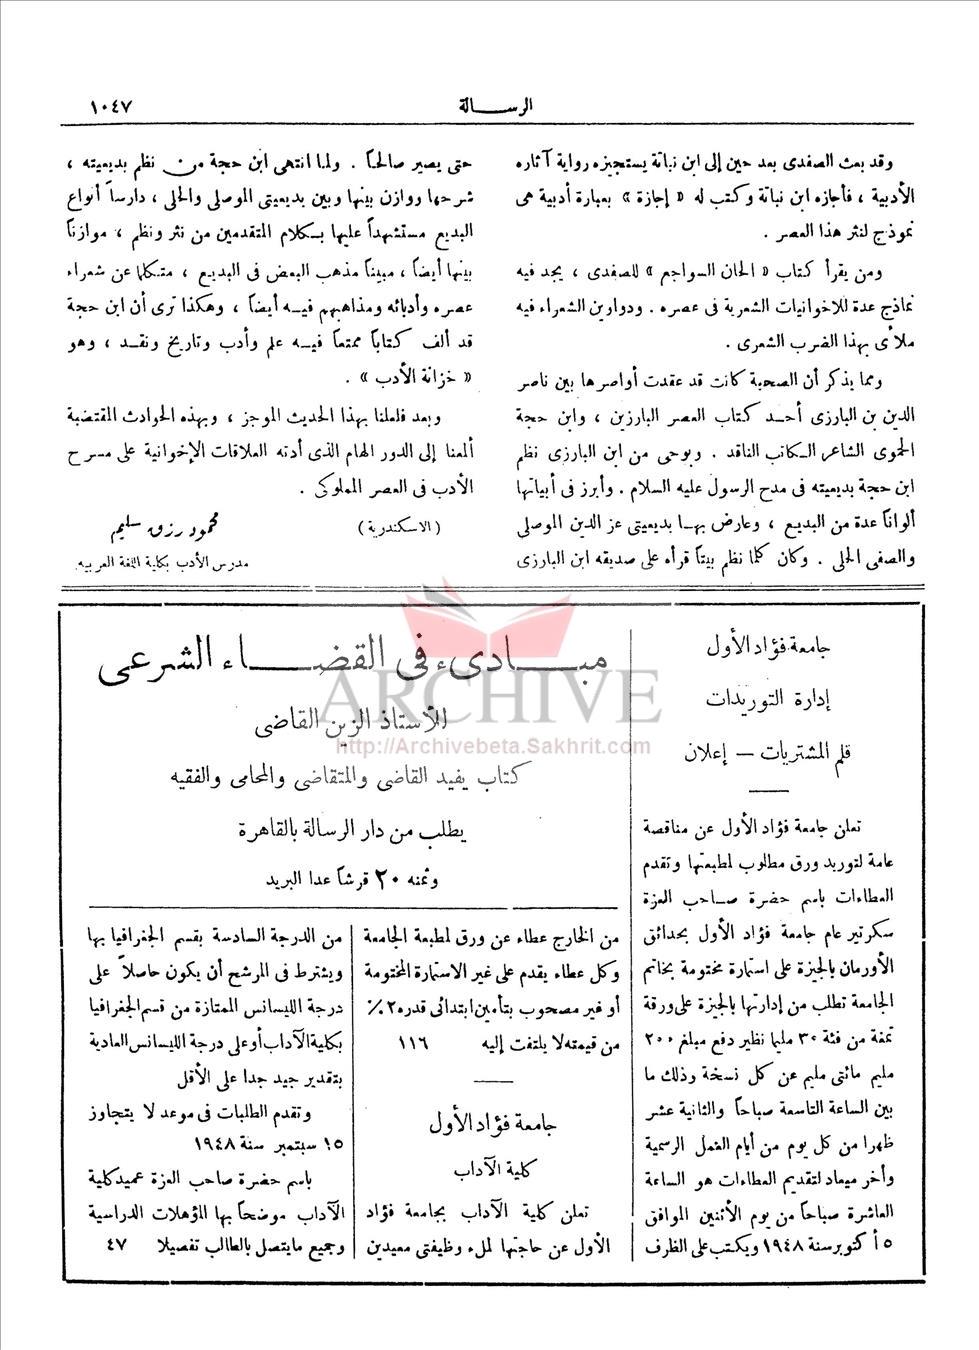 ١٠٤٧
الرسالة
وقد بعث الصفدى بعد حين إلى ابن نباتة يستجيزه رواية آثاره
الأدبية ، فأجازه ابن نباتة وكتب له « إجازة » بعبارة أدبية هى
نموذج لنثر هذا العصر .
ومن يقرأ كتاب « الحان السواجع » للصفدى ، يجد فيه
نماذج عدة للاخوانيات الشعرية فى عصره . ودواوين الشعراء فيه
ملأى بهذا الضرب الشعرى .
ومما يذكر أن الصحبة كانت قد عقدت أواصرها بين ناصر
الدين بن البارزى أحد كتاب العصر البارزين ، وابن حجة
الحموى الشاعر الكاتب الناقد . وبوحى من ابن البارزى نظم
ابن حجة بديعيته فى مدح الرسول عليه السلام . وأبرز فى أبياتها
ألواناً عدة من البديع ، وعارض بها بديعيتى عز الدين الموصلى
والصفى الحلى . وكان كلما نظم بيتاً قرأه على صديقه ابن البارزى
حتى يصير صالحاً . ولما انتهى ابن حجة من نظم بديعيته ،
شرحها ووازن بينها وبين بديعيتى الموصلى والحلى ، دارساً أنواع
البديع مستشهداً عليها بكلام المتقدمين من نثر ونظم ، موازناً
بينها أيضاً ، مبيناً مذهب البعض فى البديع ، متكلما عن شعراء
عصره وأدبائه ومذاهبهم فيه أيضاً ، وهكذا ترى أن ابن حجة
قد ألف كتاباً ممتعاً فيه علم وأدب وتاريخ ونقد ، وهو
« خزانة الأدب » .
وبعد فلعلنا بهذا الحديث الموجز ، وبهذه الحوادث المقتضبة
ألمعنا إلى الدور الهام الذى أدته العلاقات الإخوانية على مسرح
الأدب فى العصر المملوكى .
(الاسكندرية) محمود رزق سليم
مدرس الأدب بكلية اللغة العربية
جامعة فؤاد الأول
إدارة التوريدات
قلم المشتريات — إعلان
تعلن جامعة فؤاد الأول عن مناقصة
عامة لتوريد ورق مطلوب لمطبعتها وتقدم
العطاءات باسم حضرة صاحب العزة
سكرتير عام جامعة فؤاد الأول بحدائق
الأورمان بالجيزة على استمارة مختومة بخاتم
الجامعة تطلب من إدارتها بالجيزة على ورقة
تمغة من فئة ٣٠ مليما نظير دفع مبلغ ٢٠٠
مليم مائتى مليم عن كل نسخة وذلك ما
بين الساعة التاسعة صباحاً والثانية عشر
ظهرا من كل يوم من أيام العمل الرسمية
وآخر ميعاد لتقديم العطاءات هو الساعة
العاشرة صباحاً من يوم الأثنين الموافق
٥ أكتوبر سنة ١٩٤٨ ويكتب على الظرف
مبادىء فى القضاء الشرعى
للأستاذ الزين القاضى
كتاب يفيد القاضى والمتقاضى والمحامى والفقيه
يطلب من دار الرسالة بالقاهرة
وثمنه ٢٠ قرشاً عدا البريد
من الخارج عطاء عن ورق لمطبعة الجامعة
وكل عطاء يقدم على غير الاستمارة المختومة
أو غير مصحوب بتأمين ابتدائى قدره ٢٪
من قيمته لا يلتفت إليه ١١٦
جامعة فؤاد الأول
كلية الآداب
تعلن كلية الآداب بجامعة فؤاد
الأول عن حاجتها لملء وظيفتى معيدين
من الدرجة السادسة بقسم الجغرافيا بها
ويشترط فى المرشح أن يكون حاصلاً على
درجة الليسانس الممتازة من قسم الجغرافيا
بكلية الآداب أو على درجة الليسانس العادية
بتقدير جيد جدا على الأقل
وتقدم الطلبات فى موعد لا يتجاوز
١٥ سبتمبر سنة ١٩٤٨
باسم حضرة صاحب العزة عميد كلية
الآداب موضحاً بها المؤهلات الدراسية
وجميع ما يتصل بالطالب تفصيلا ٤٧
ARCHIVE
http://Archivebeta.Sakhrit.com